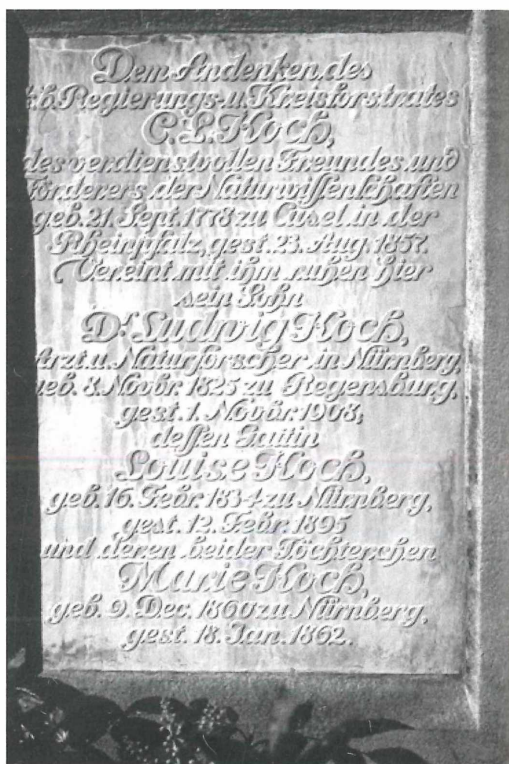 Dem Andenken des
k.b. Regierungs- u. Kreisforstrates
C. L. Koch,
des verdienstvollen Freundes und
Förderers der Naturwissenschaften
geb. 21. Sept. 1778 zu Cusel in der
Rheinpfalz, gest. 23. Aug. 1857.
Vereint mit ihm ruhen hier
sein Sohn
Dr. Ludwig Koch,
Arzt u. Naturforscher in Nürnberg,
geb. 8. Novbr. 1825 zu Regensburg,
gest. 1. Novbr. 1908,
dessen Gattin
Louise Koch,
geb. 16. Febr. 1834 zu Nürnberg,
gest. 12. Febr. 1895
und deren beider Töchterchen
Marie Koch,
geb. 9. Dec. 1860 zu Nürnberg,
gest. 18. Jan. 1862.